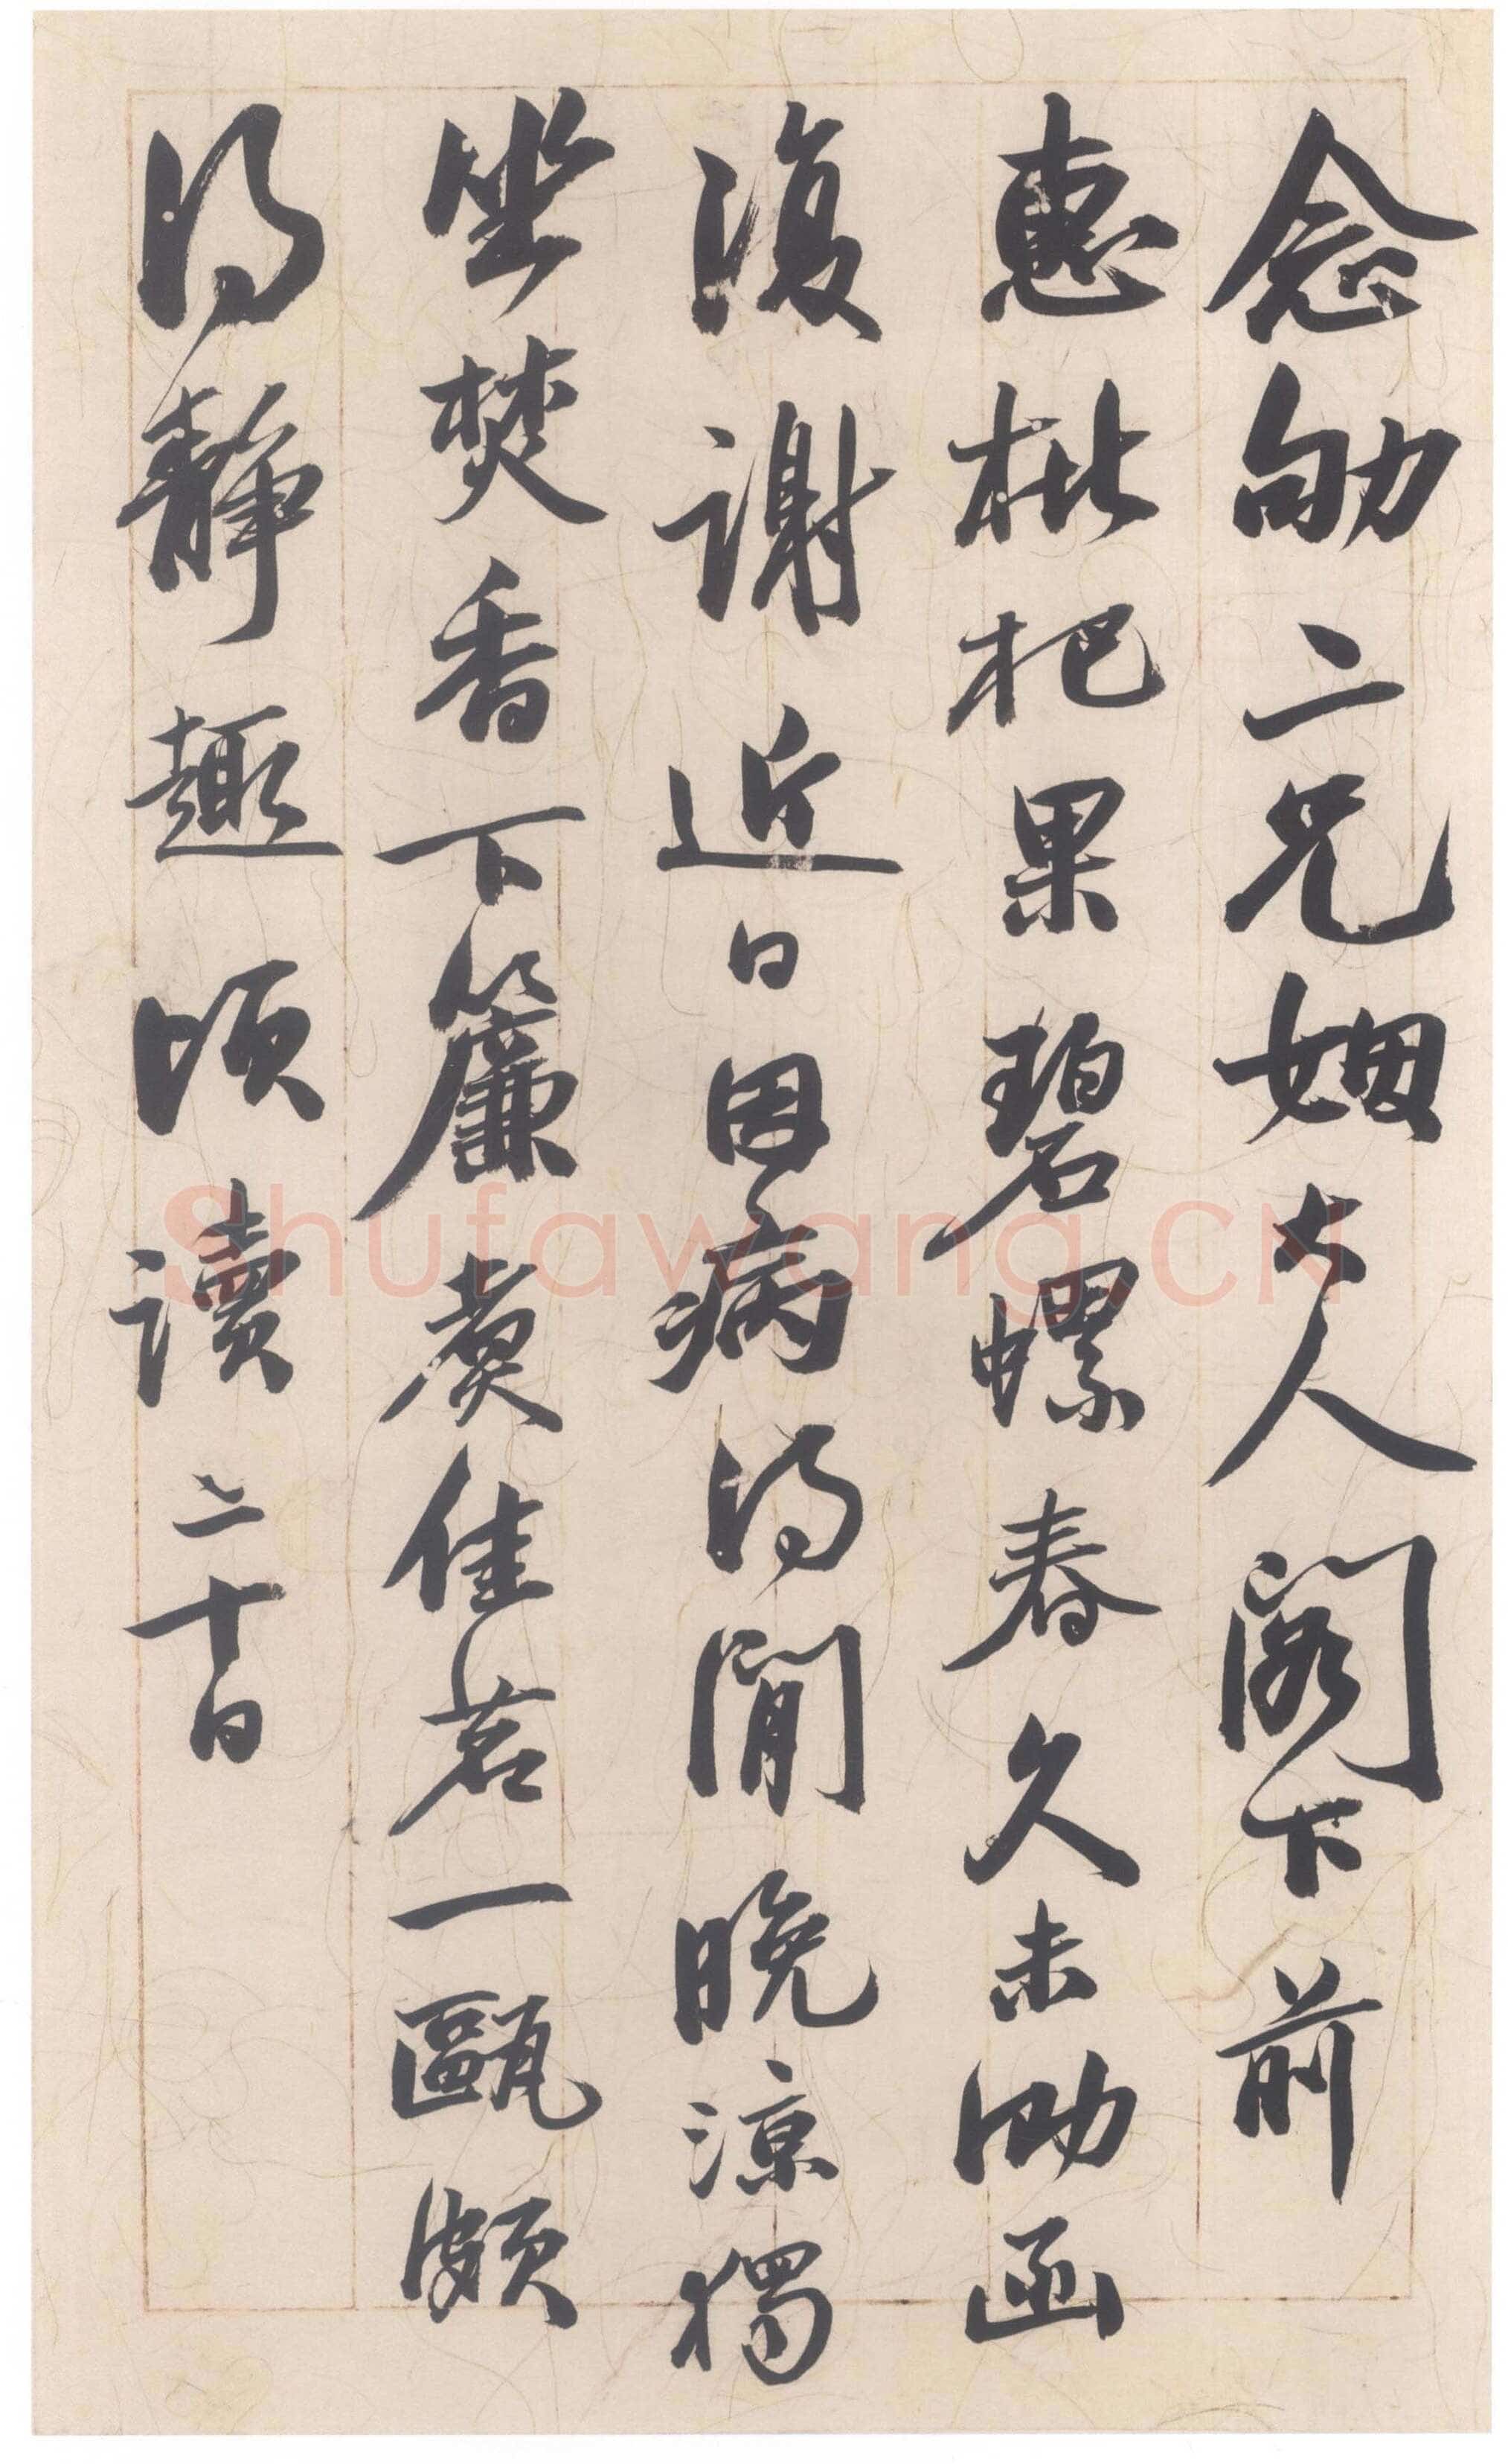 念劬二兄姻大人阁下前
惠枇杷果碧螺春久未助函
復謝近日因病得閒晚涼獨
坐焚香下簾煑佳茗一甌頗
得靜趣頃讀二十日
Shufawang.CN